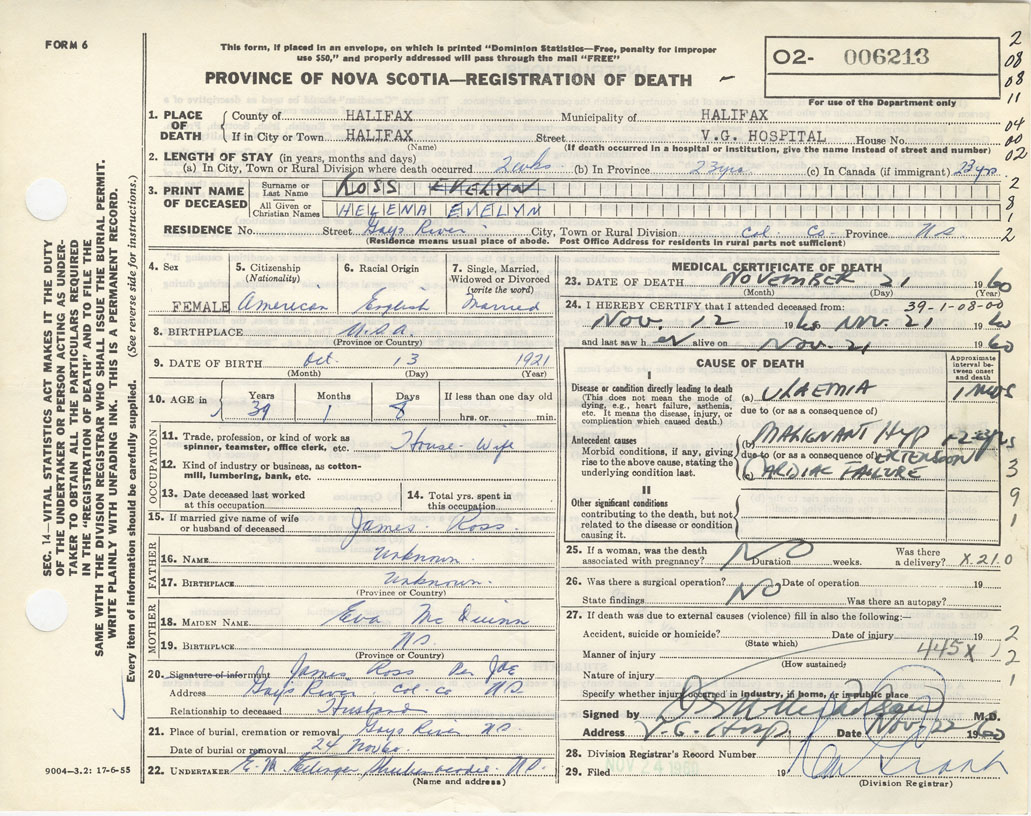 FORM 6
This form, if placed in an envelope, on which is printed "Dominion Statistics—Free, penalty for improper
use $50," and properly addressed will pass through the mail "FREE"
PROVINCE OF NOVA SCOTIA—REGISTRATION OF DEATH
O2- 006213
For use of the Department only
2
08
08
11
04
00
02
2
8
1
2
SEC. 14—VITAL STATISTICS ACT MAKES IT THE DUTY
OF THE UNDERTAKER OR PERSON ACTING AS UNDER-
TAKER TO OBTAIN ALL THE PARTICULARS REQUIRED
IN THE "REGISTRATION OF DEATH" AND TO FILE THE
SAME WITH THE DIVISION REGISTRAR WHO SHALL ISSUE THE BURIAL PERMIT.
WRITE PLAINLY WITH UNFADING INK. THIS IS A PERMANENT RECORD.
Every item of information should be carefully supplied. (See reverse side for instructions.)
1. PLACE OF DEATH
County of HALIFAX Municipality of HALIFAX
If in City or Town HALIFAX Street V.G. HOSPITAL House No.
(Name) (If death occurred in a hospital or institution, give the name instead of street and number)
2. LENGTH OF STAY (in years, months and days)
(a) In City, Town or Rural Division where death occurred 2 wks. (b) In Province 23 yrs. (c) In Canada (if immigrant) 23 yrs.
3. PRINT NAME OF DECEASED
Surname or Last Name ROSS EVELYN
All Given or Christian Names HELENA EVELYN
RESIDENCE No. Street Gays River City, Town or Rural Division Col. Co. Province N.S.
(Residence means usual place of abode. Post Office Address for residents in rural parts not sufficient)
4. Sex FEMALE
5. Citizenship (Nationality) American
6. Racial Origin English
7. Single, Married, Widowed or Divorced (write the word) Married
8. BIRTHPLACE U.S.A.
(Province or Country)
9. DATE OF BIRTH Oct. 13 1921
(Month) (Day) (Year)
10. AGE in Years 39 Months 1 Days 8 If less than one day old
hrs. or min.
OCCUPATION
11. Trade, profession, or kind of work as
spinner, teamster, office clerk, etc. House-Wife
12. Kind of industry or business, as cotton-
mill, lumbering, bank, etc.
13. Date deceased last worked
at this occupation
14. Total yrs. spent in
this occupation
15. If married give name of wife
or husband of deceased James Ross
FATHER
16. NAME Unknown
17. BIRTHPLACE Unknown
(Province or Country)
MOTHER
18. MAIDEN NAME Eva
19. BIRTHPLACE NS
(Province or Country)
20. Signature of informant James Ross Per
Address Gays River Col-Co NS
Relationship to deceased Husband
21. Place of burial, cremation or removal Gays River NS
Date of burial or removal 24 Nov 60
22. UNDERTAKER E. M. Shubenacadie N.S.
(Name and address)
9004—3.2: 17-6-55
MEDICAL CERTIFICATE OF DEATH
23. DATE OF DEATH NOVEMBER 21 1960
(Month) (Day) (Year)
24. I HEREBY CERTIFY that I attended deceased from: 39-1-08-00
Nov. 12 1960 NOV. 21 1960
and last saw her alive on Nov. 21 1960
CAUSE OF DEATH
Approximate interval between onset and death
I
Disease or condition directly leading to death
(This does not mean the mode of
dying, e.g., heart failure, asthenia,
etc. It means the disease, injury, or
complication which caused death.)
(a) URAEMIA
due to (or as a consequence of)
Antecedent causes
Morbid conditions, if any, giving
rise to the above cause, stating the
underlying condition last.
(b) MALIGNANT HYPERTENSION
due to (or as a consequence of)
(c) CARDIAC FAILURE
3
9
1
II
Other significant conditions
contributing to the death, but not
related to the disease or condition
causing it.
25. If a woman, was the death
associated with pregnancy? NO Duration weeks. Was there
a delivery? X.210
26. Was there a surgical operation? NO Date of operation 19
State findings Was there an autopsy?
27. If death was due to external causes (violence) fill in also the following:—
Accident, suicide or homicide? Date of injury 19 2
(State which)
Manner of injury 445X 2
(How sustained)
Nature of injury 1
Specify whether injury occurred in industry, in home, or in public place
Signed by M.D.
Address V.G. Hosp Date Nov 22 1960
28. Division Registrar's Record Number
29. Filed NOV 24 1960 19
(Division Registrar)